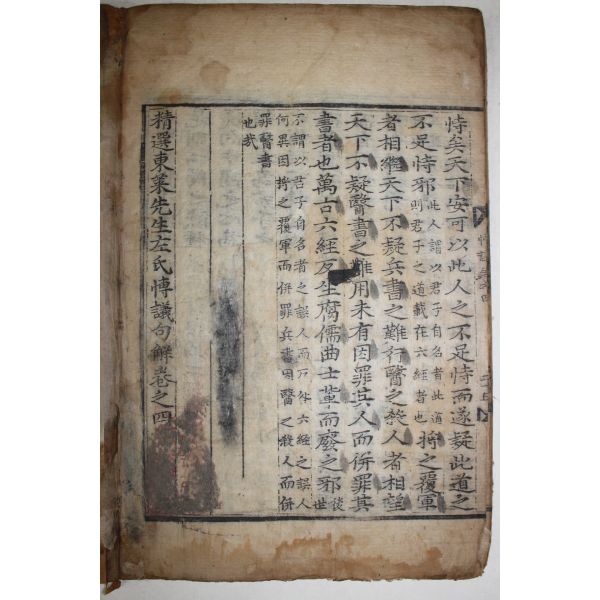 恃矣天下安可以此人之不足恃而遂疑此道之
不足恃邪此人謂以君子自名者此道則君子之道藏在六經者也將之覆軍
者相繼天下不疑兵書之難行醫之殺人者相望
天下不疑醫書之難用未有因罪兵人而併罪其
書者也萬古六經反坐腐儒曲士輩而廢之邪後世
不謂以君子自名者之誤人而反咎六經之誤人
何異因將之覆軍而併罪兵書因醫之殺人而併
罪醫書
也哉
精選東萊先生左氏博議句解卷之四